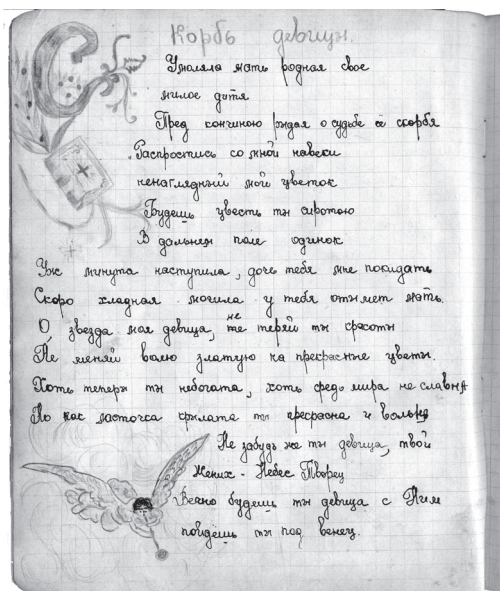 Скорбь девицы.
Умоляла мать родная свое
милое дитя
Пред кончиною рыдая о судьбе её скорбя
Распростись со мной навеки
ненаглядный мой цветок
Будешь цвесть ты сиротою
В дальнем поле одинок
Уж минута наступила, дочь тебя мне покидать
Скоро хладная могила у тебя отымет мать.
О звезда моя девица, не теряй ты красоты
Не меняй волю златую на прекрасные цветы.
Хоть теперь ты небогата, хоть средь мира не славна
Но как ласточка крылата ты прекрасна и вольна
Не забудь же ты девица, твой
Жених - Небес Творец
Вечно будешь ты девица с Ним
пойдёшь ты под венец.